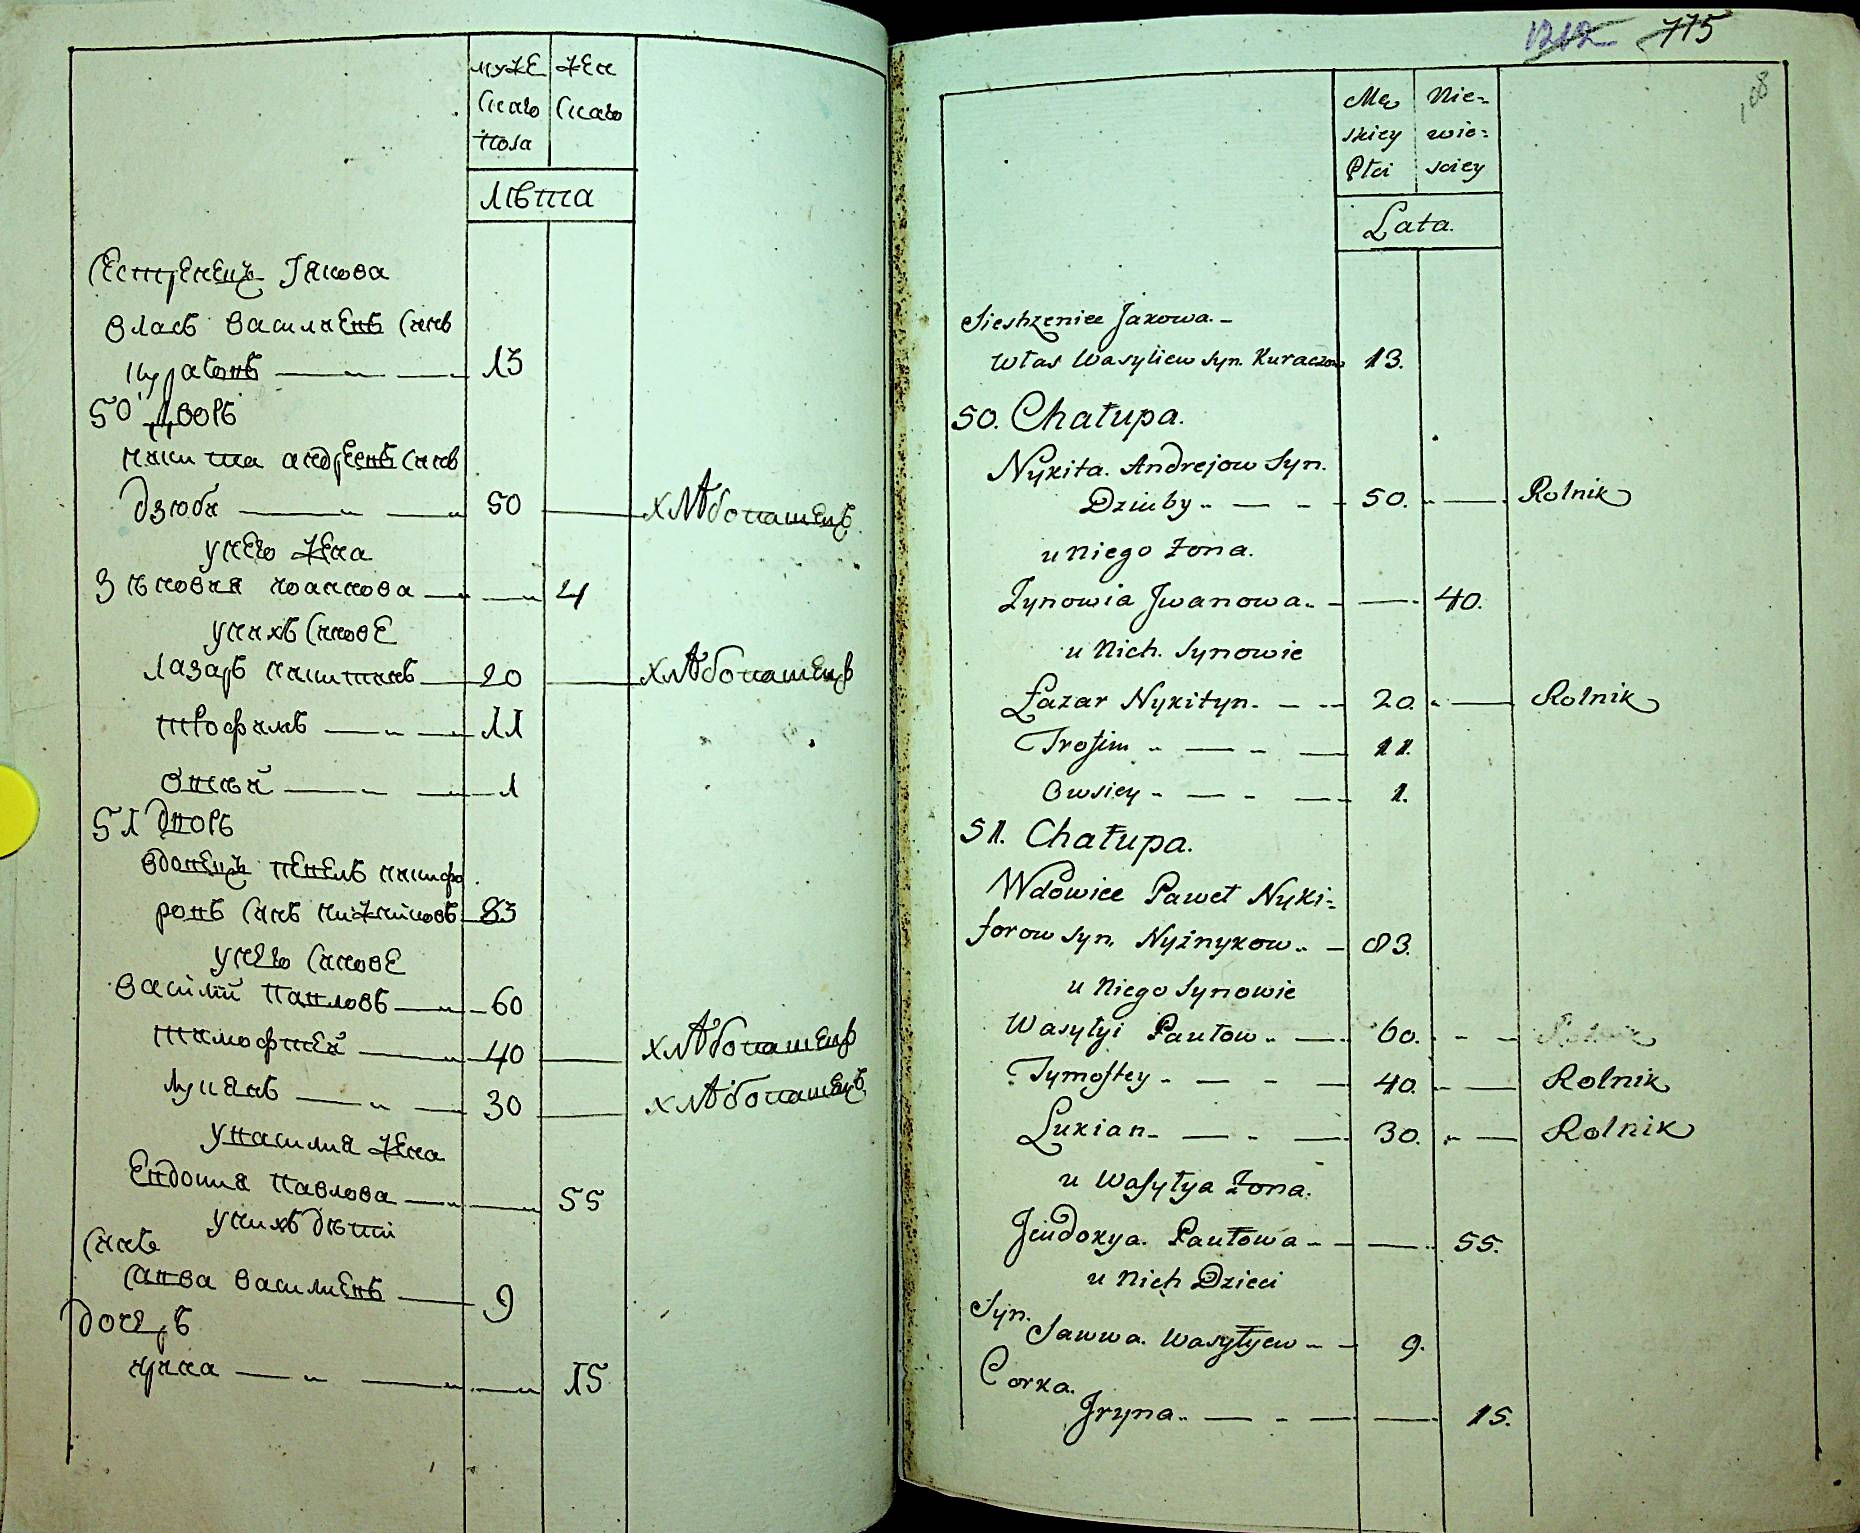 муже женъ
скаго скаго
пола
лѣта
Сестренецъ Іякова
власъ василиевъ синъ
курачовъ 13
50 дворъ
никита андреевъ синъ
дзюби 50 хлѣбопашецъ
унего жена
зѣновия иоаннова 4
унихъ синове
лазаръ никитинъ 20 хлѣбопашецъ
трофимъ 11
овсей 1
51 дворъ
вдовецъ павелъ никифо
ровъ синъ нижниковъ 83
унего синове
василій павловъ 60
тимофтей 40 хлѣбопашецъ
лукянъ 30 хлѣбопашецъ
увасилия жена
Евдокия павлова 55
унихъ дѣти
синъ
савва василиевъ 9
дочеръ
ирина 15
1212 775
108
Mę Nie=
skiey wie=
Płci sciey
Lata.
Siestrzeniec Jakowa.
Włas Wasyliew syn. Kuraczow 13.
50. Chałupa.
Nykita. Andrejow Syn.
Dziuby 50. Rolnik
u niego Żona.
Zynowia Jwanowa. 40.
u Nich. Synowie
Łazar Nykityn. 20. Rolnik
Trofim 11.
Owsiey 1.
51. Chałupa.
Wdowiec Paweł Nyki=
forow syn. Nyżnykow. 83.
u Niego Synowie
Wasyłyi Paułow. 60. Rolnik
Tymoftey 40. Rolnik
Lukian 30. Rolnik
u Wasyłya Żona.
Jeudokya. Paułowa 55.
u Nich Dzieci
Syn.
Sawwa. Wasyłyew 9.
Corka.
Jryna. 15.